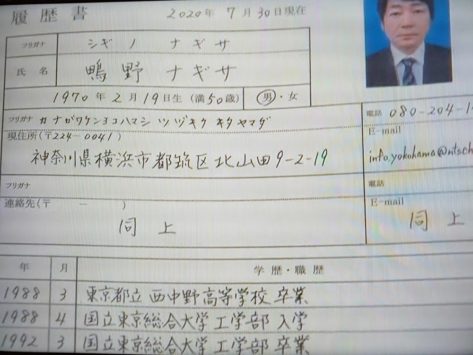 履歴書 2020年 7月30日現在
フリガナ シギノ ナギサ
氏名 鴫野 ナギサ
1970年 2月19日生 (満50歳) 男・女
フリガナ カナガワケンヨコハマシ ツヅキク キタヤマダ
電話 080-204-1
現住所(〒224-0041)
E-mail
神奈川県横浜市都筑区北山田9-2-19
info.yokohama@nitsch
フリガナ
電話
連絡先(〒 - )
E-mail
同上
同上
年 月 学歴・職歴
1988 3 東京都立 西中野高等学校 卒業
1988 4 国立東京総合大学 工学部 入学
1992 3 国立東京総合大学 工学部 卒業